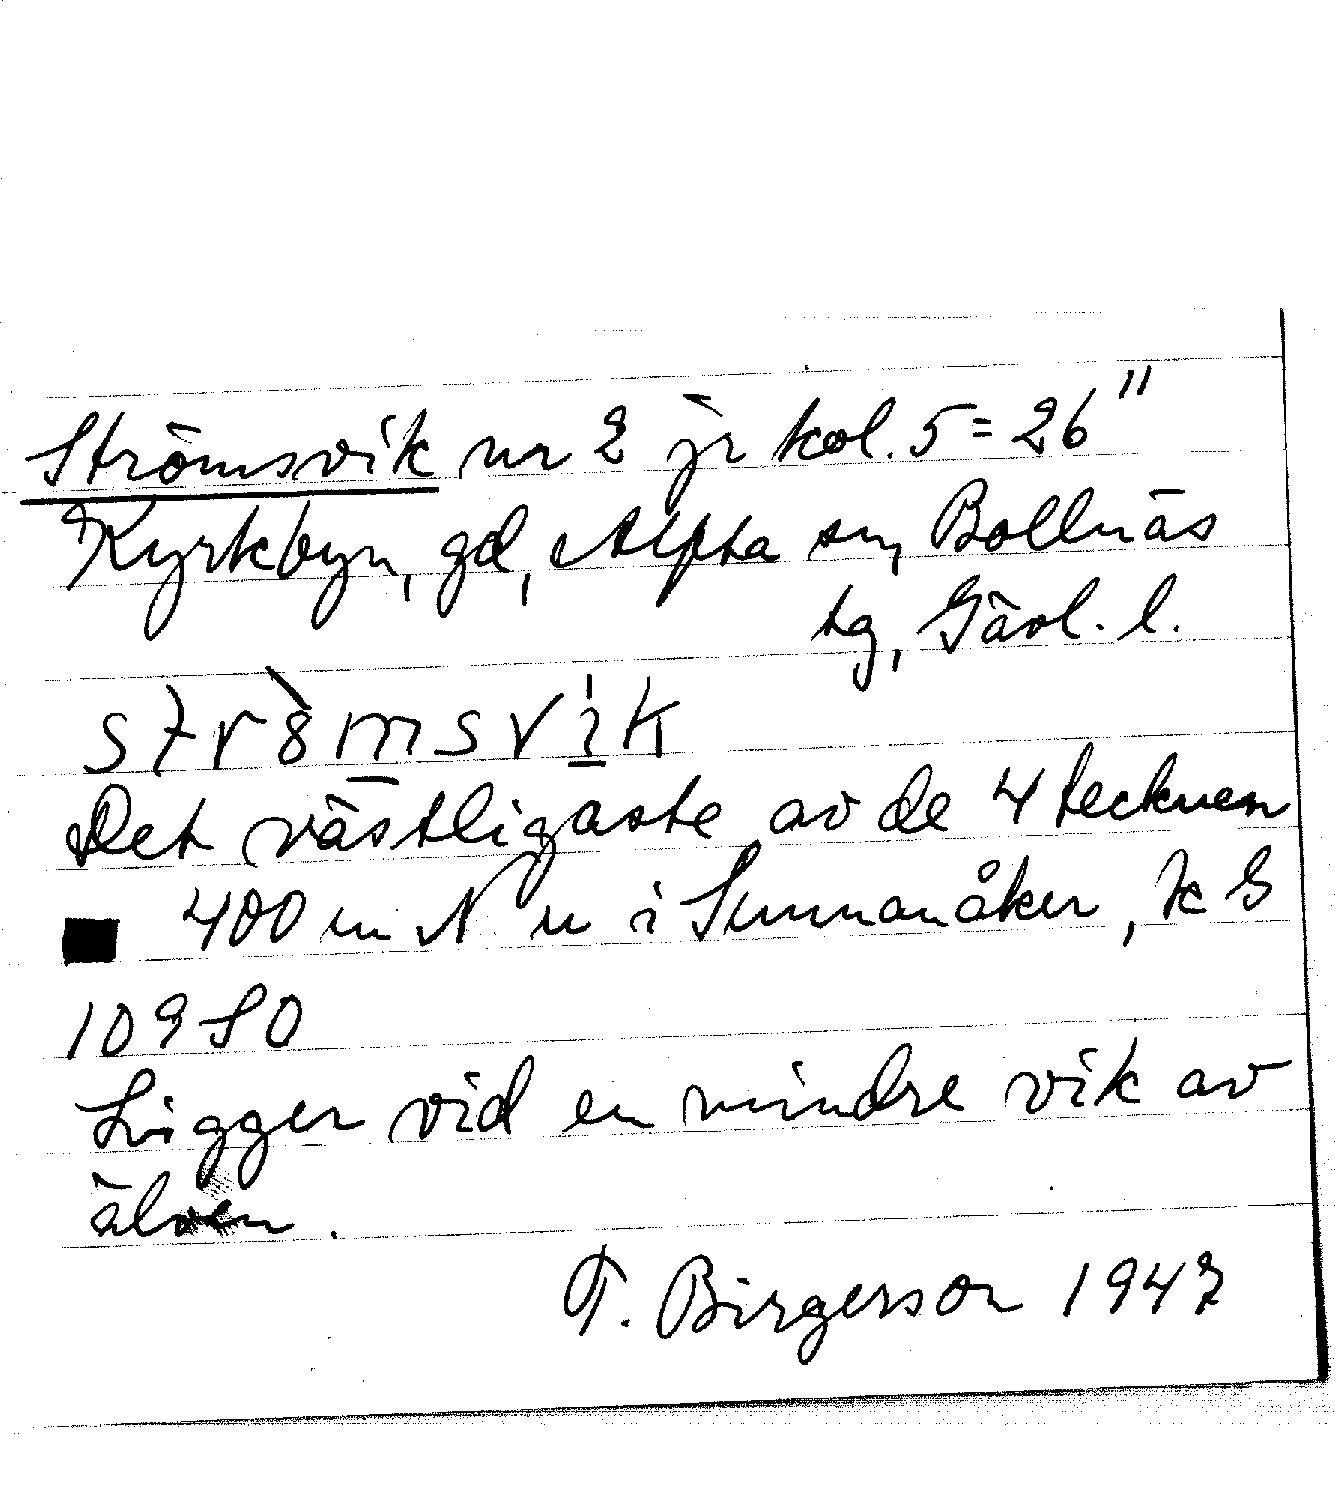 Strömsvik nr 2 jr kol. 5 = 26"
Kyrkbyn, gd, Alfta sn, Bollnäs
tg, Gävl. l.
strömsvik
Det västligaste av de 4 tecknen
■ 400 m N u i Sunnanåker, k G
109 SO
Ligger vid en mindre vik av
älven.
T. Birgerson 1947